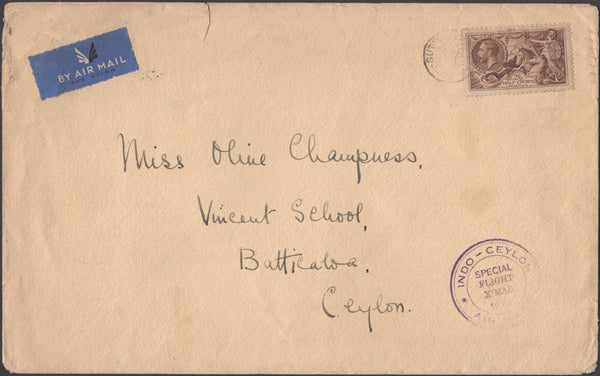 BY AIR MAIL
PAR AVION
HALF CROWN
Miss Olive Champness,
Vincent School,
Batticaloa,
Ceylon.
INDO - CEYLON
SPECIAL
FLIGHT
X'MAS